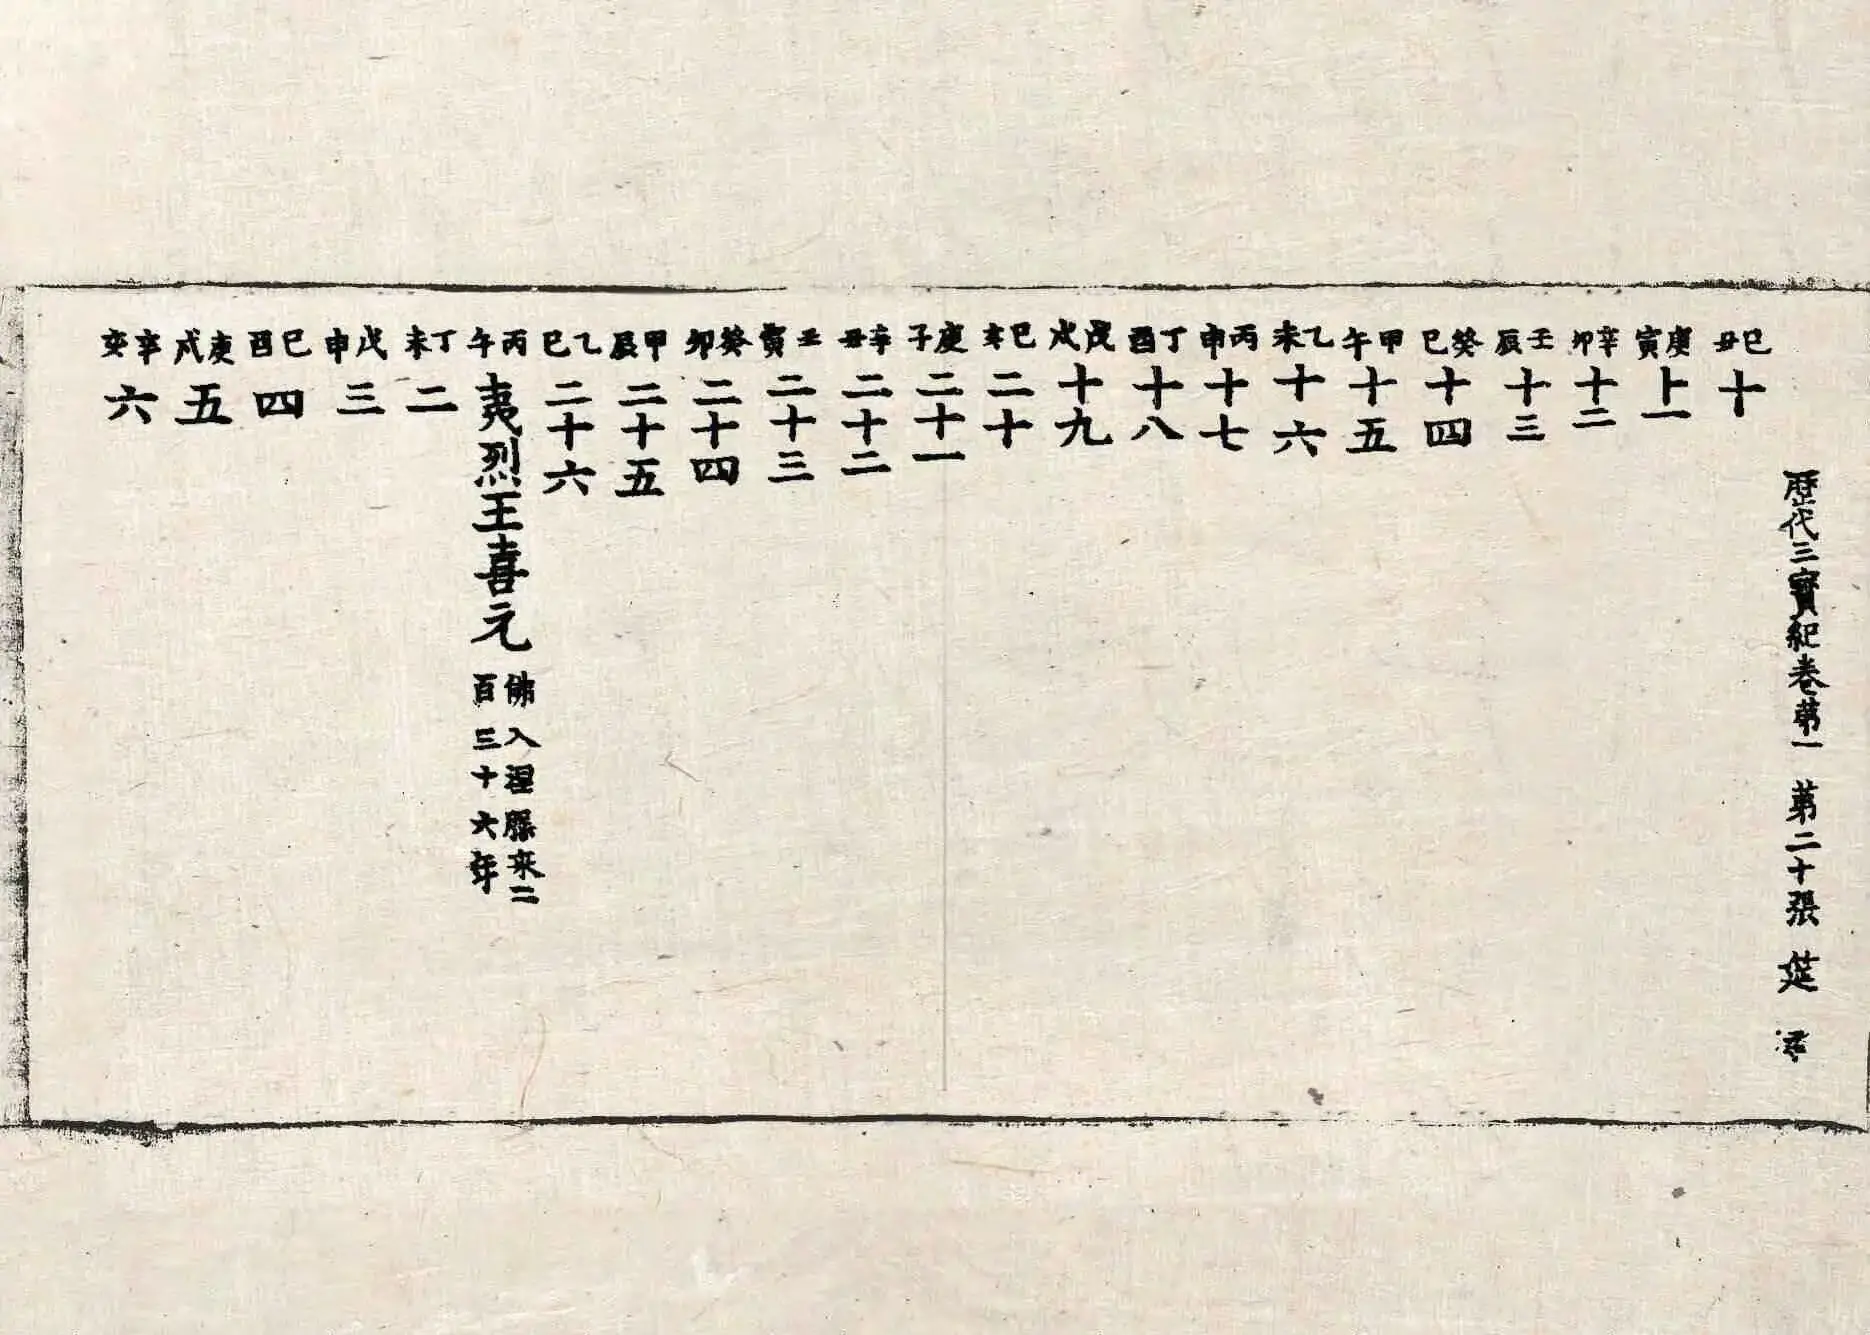 歴代三寶紀卷第一 第二十張
己丑 十
庚寅 十一
辛卯 十二
壬辰 十三
癸巳 十四
甲午 十五
乙未 十六
丙申 十七
丁酉 十八
戊戌 十九
己亥 二十
庚子 二十一
辛丑 二十二
壬寅 二十三
癸卯 二十四
甲辰 二十五
乙巳 二十六
丙午 夷烈王喜元 佛入涅槃来二
百三十六年
丁未 二
戊申 三
己酉 四
庚戌 五
辛亥 六